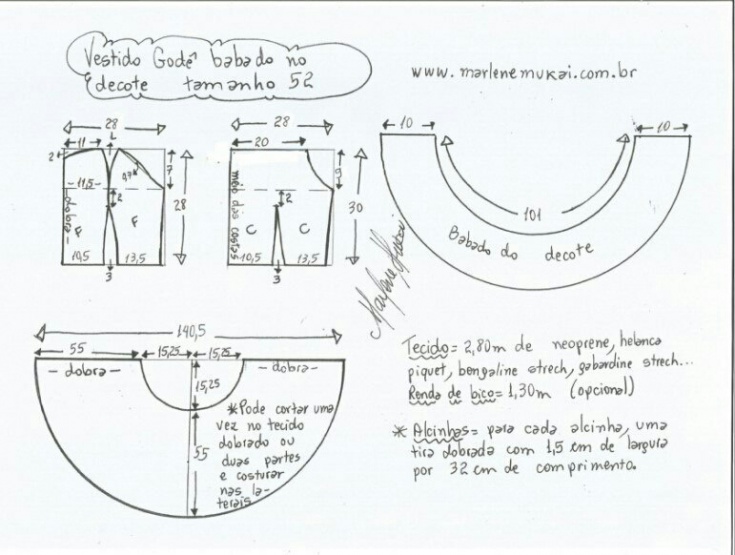 Vestido Godê babado no
decote tamanho 52
www.marlenemukai.com.br
28
11
2
7
11,5
2
28
dobra
F
F
10,5
13,5
3
28
20
9
2
30
meio das costas
C
C
10,5
13,5
3
10
10
101
Babado do decote
Marlene Mukai
140,5
55
15,25
15,25
- dobra -
- dobra -
15,25
55
*Pode cortar uma
vez no tecido
dobrado ou
duas partes
e costurar
nas la-
terais
Tecido= 2,80m de neoprene, helanca
piquet, bengaline strech, gabardine strech...
Renda de bico= 1,30m (opcional)
* Alcinhas= para cada alcinha, uma
tira dobrada com 1,5 cm de largura
por 32 cm de comprimento.